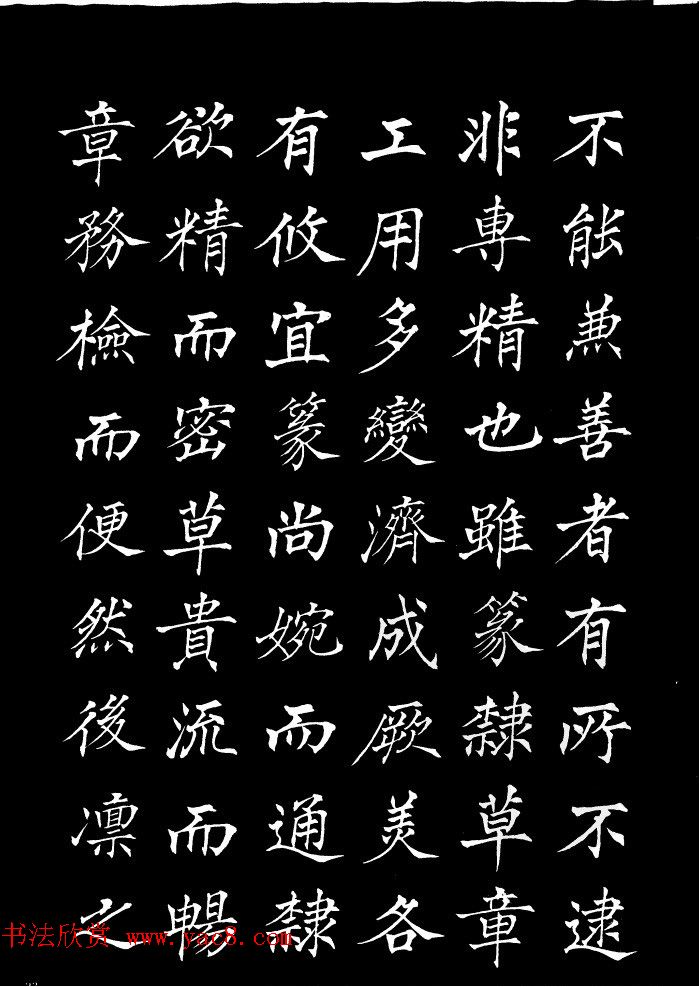 不能兼善者有所不逮
非專精也雖篆隸草章
工用多變濟成厥美各
有攸宜篆尚婉而通隸
欲精而密草貴流而暢
章務檢而便然後凜之
书法欣赏 www.yac8.com